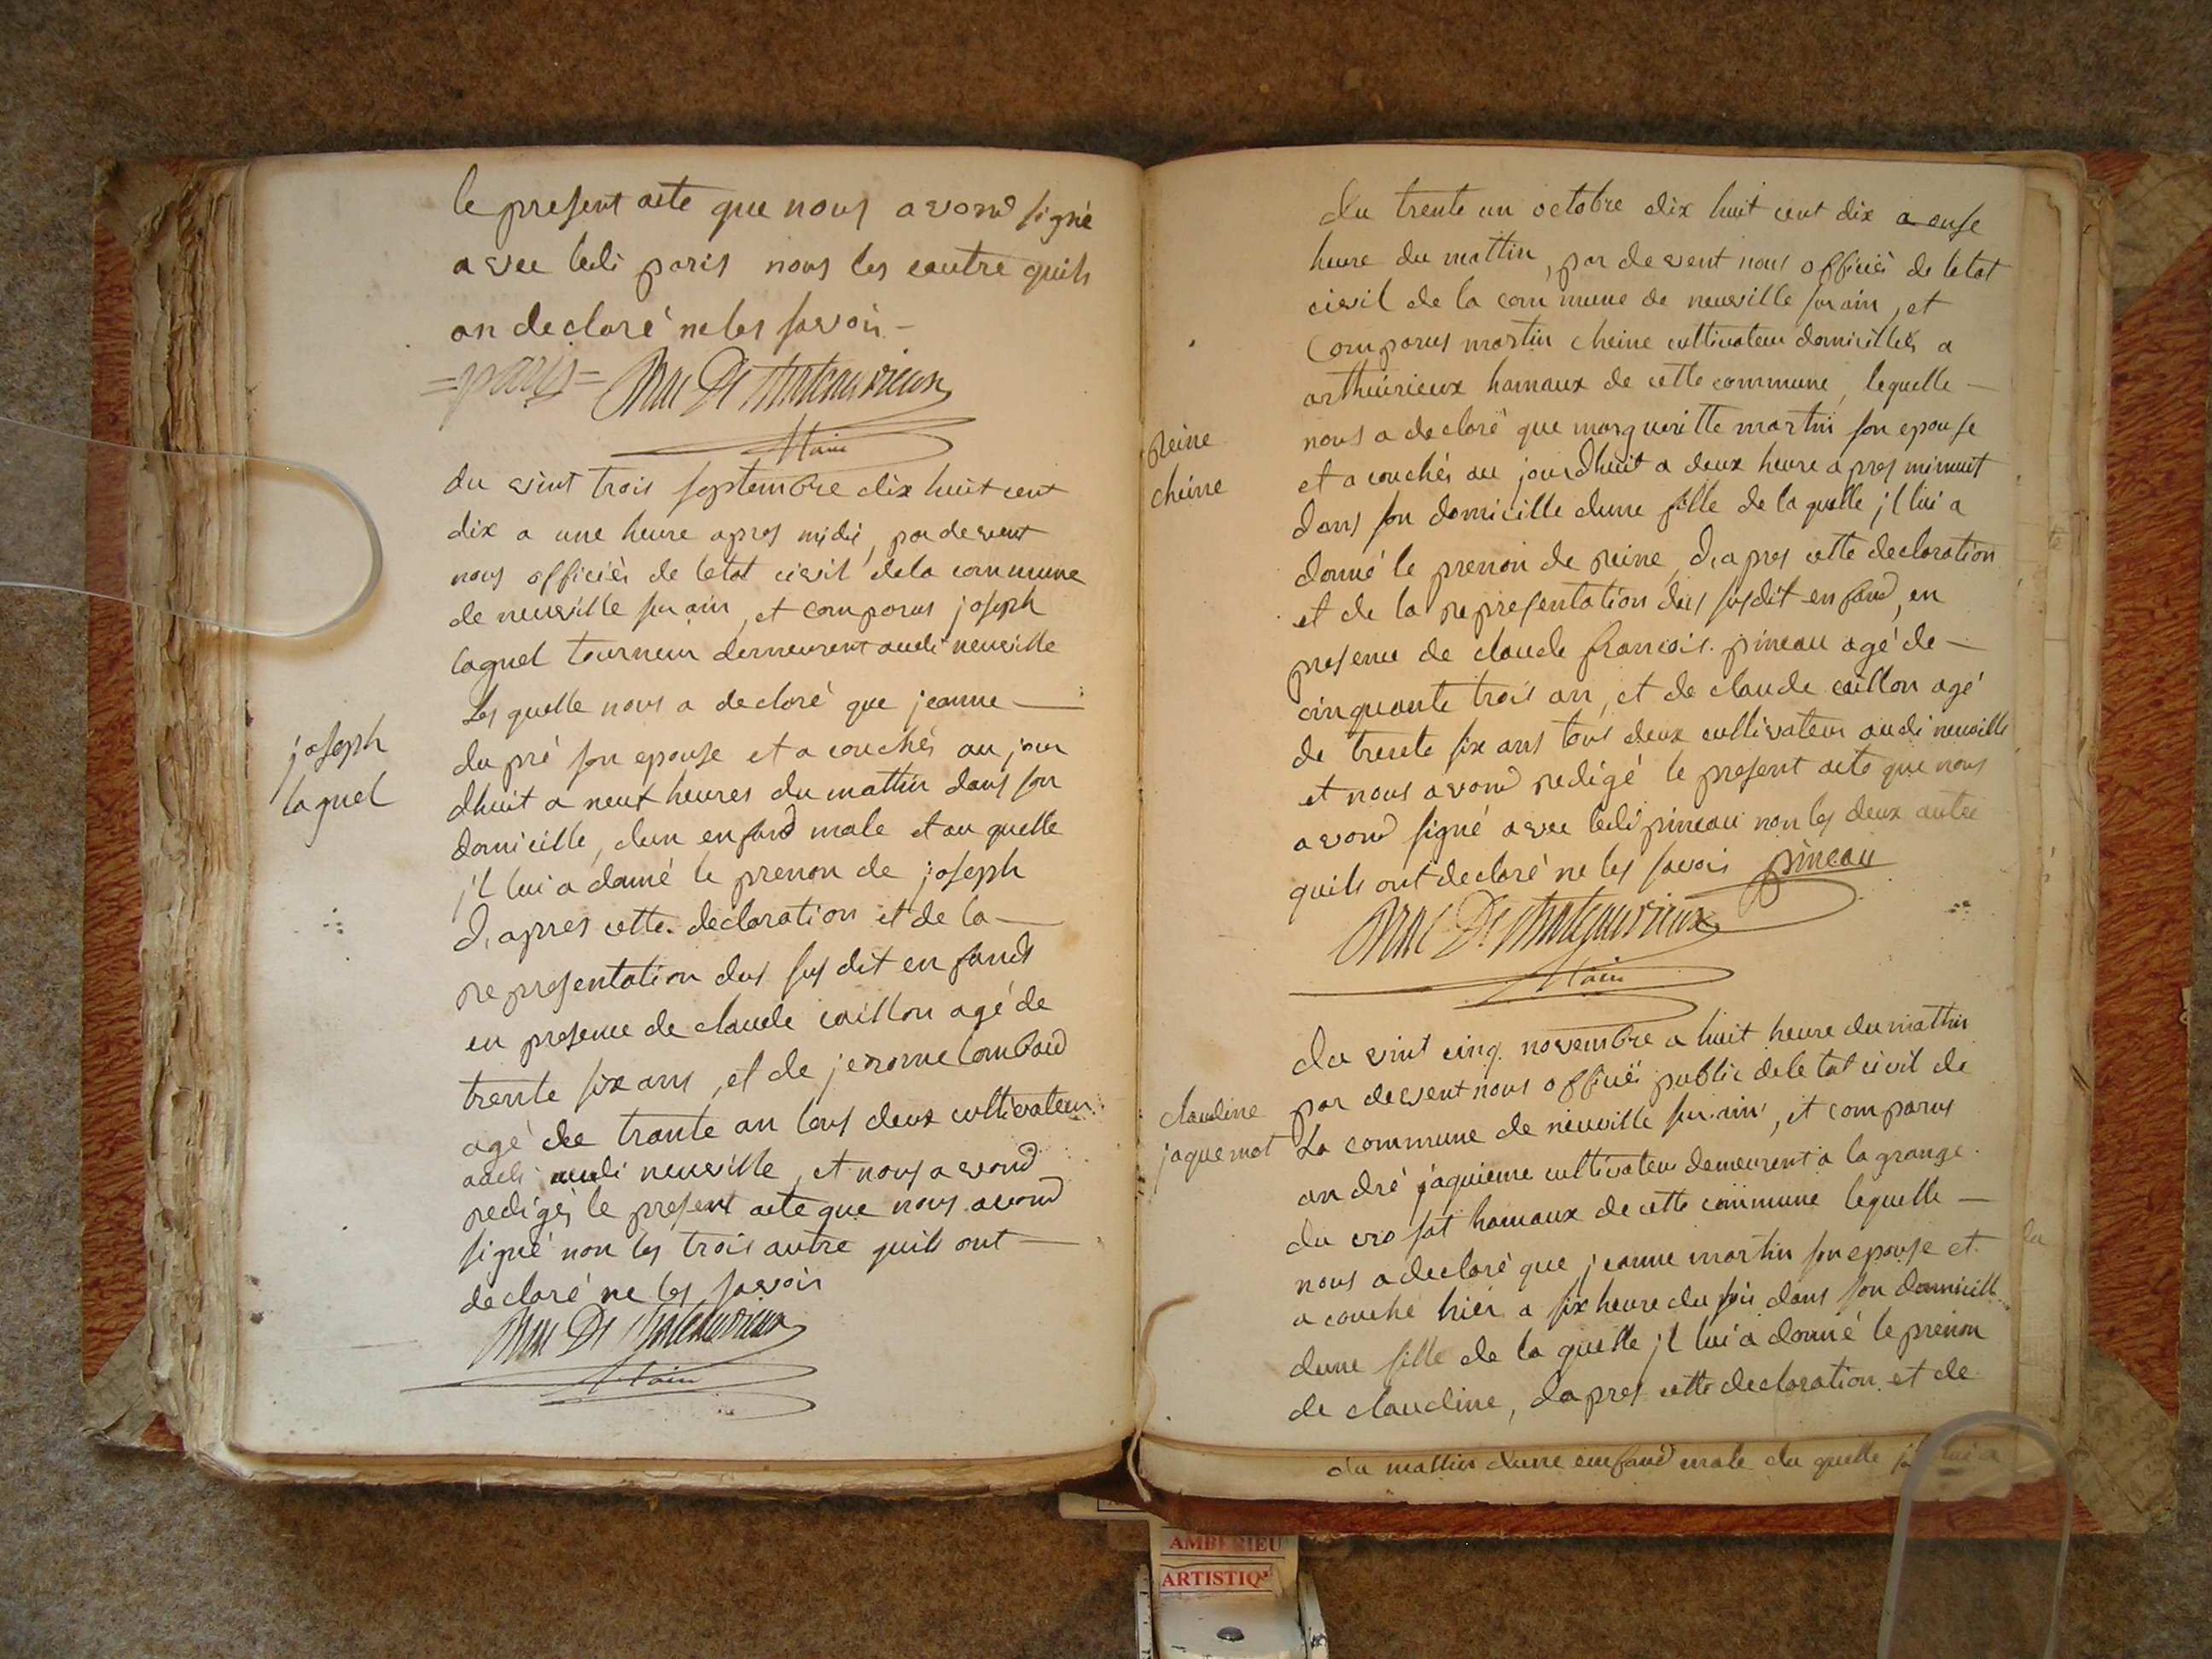 le present acte que nous avond signé
avec ledi paris nous les eautre quils
on declaré ne les savoir -
= paris =
Maire
joseph
laguel
du vint trois septembre dix huit cent
dix a une heure apres midi, par devent
nous officiér de letat cievil dela commune
de neuville sur ain, et comparus joseph
laguel tourneur demeurent audi neuville
Les quelle nous a decloré que jeanne —
du pré son epouse et a couchés au jour
dhuit a neuf heures du mattin dans son
domicille, dun enfand male et au quelle
jl lui a donné le prenon de joseph
d,apres cette declaration et de la —
representation dus sus dit enfands
en presence de claude caillon agé de
trente six ans, et de jerome lombard
agé de trante an tous deux cultivateur
audi neuville, et nous avond
redigés le present acte que nous avond
signé non les trois autre quils ont —
declaré ne les savoir
Maire
du trente un octobre dix huit cent dix a onse
heure du mattin, par devent nous officiér de letat
cievil de la commune de neuville sur ain, et
Comparus martin cheine cultivateur domicilliés a
arthuirieux hamaux de cette commune, lequelle —
nous a decloré que margueritte martin son epouse
et a couchés au jourdhuit a deux heure apres minuit
dans son domicille dune fille de la quelle jl lui a
donné le prenon de reine, d,apres cette decloration
et de la representation dus susdit enfand, en
presence de claude francois pineau agé de —
cinquante trois an, et de claude caillon agé
de trente six ans tous deux cultivateur audi neuville
et nous avond redigé le present acte que nous
avond signé avec ledi pineau non les deux autre
quils ont decloré ne les savoir pineau
Maire
reine
cheine
du vint cinq novembre a huit heure du mattin
par devent nous officié public de letat civil de
La commune de neuville sur ain, et comparus
andré jaquieme cultivateur demeurent a la grange
du crosat hamaux de cette commune lequelle —
nous a decloré que jeanne martin son epouse et
a couché hier a six heure du soir dans son domicille
dune fille de la quelle jl lui a donné le prenon
de claudine, dapres cette decloration et de
claudine
jaquemot
du mattin dune emfand male du quelle jl lui a
la
AMBERIEU
ARTISTIQ